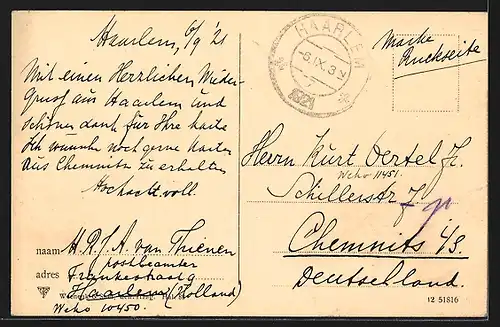 Haarlem, 6/9 '21
Mit einen Herzlichen Wieder-
Gruss aus Haarlem und
schönen dank für Ihre karte
Ich wünsche noch gerne Karten
aus Chemnitz zu erhalten
Hochachtvoll.
naam H.P.J.A. van Thienen
postbeamter
adres Frankestraat 9
Haarlem (Holland)
Weho 10450.
HAARLEM
-6.IX.3-
1921
Marke
Ruckseite
Herrn Kurt Oertel Jr.
Weho 11451.
Schillerstr
Chemnits i/S.
Deutschland.
12 51816